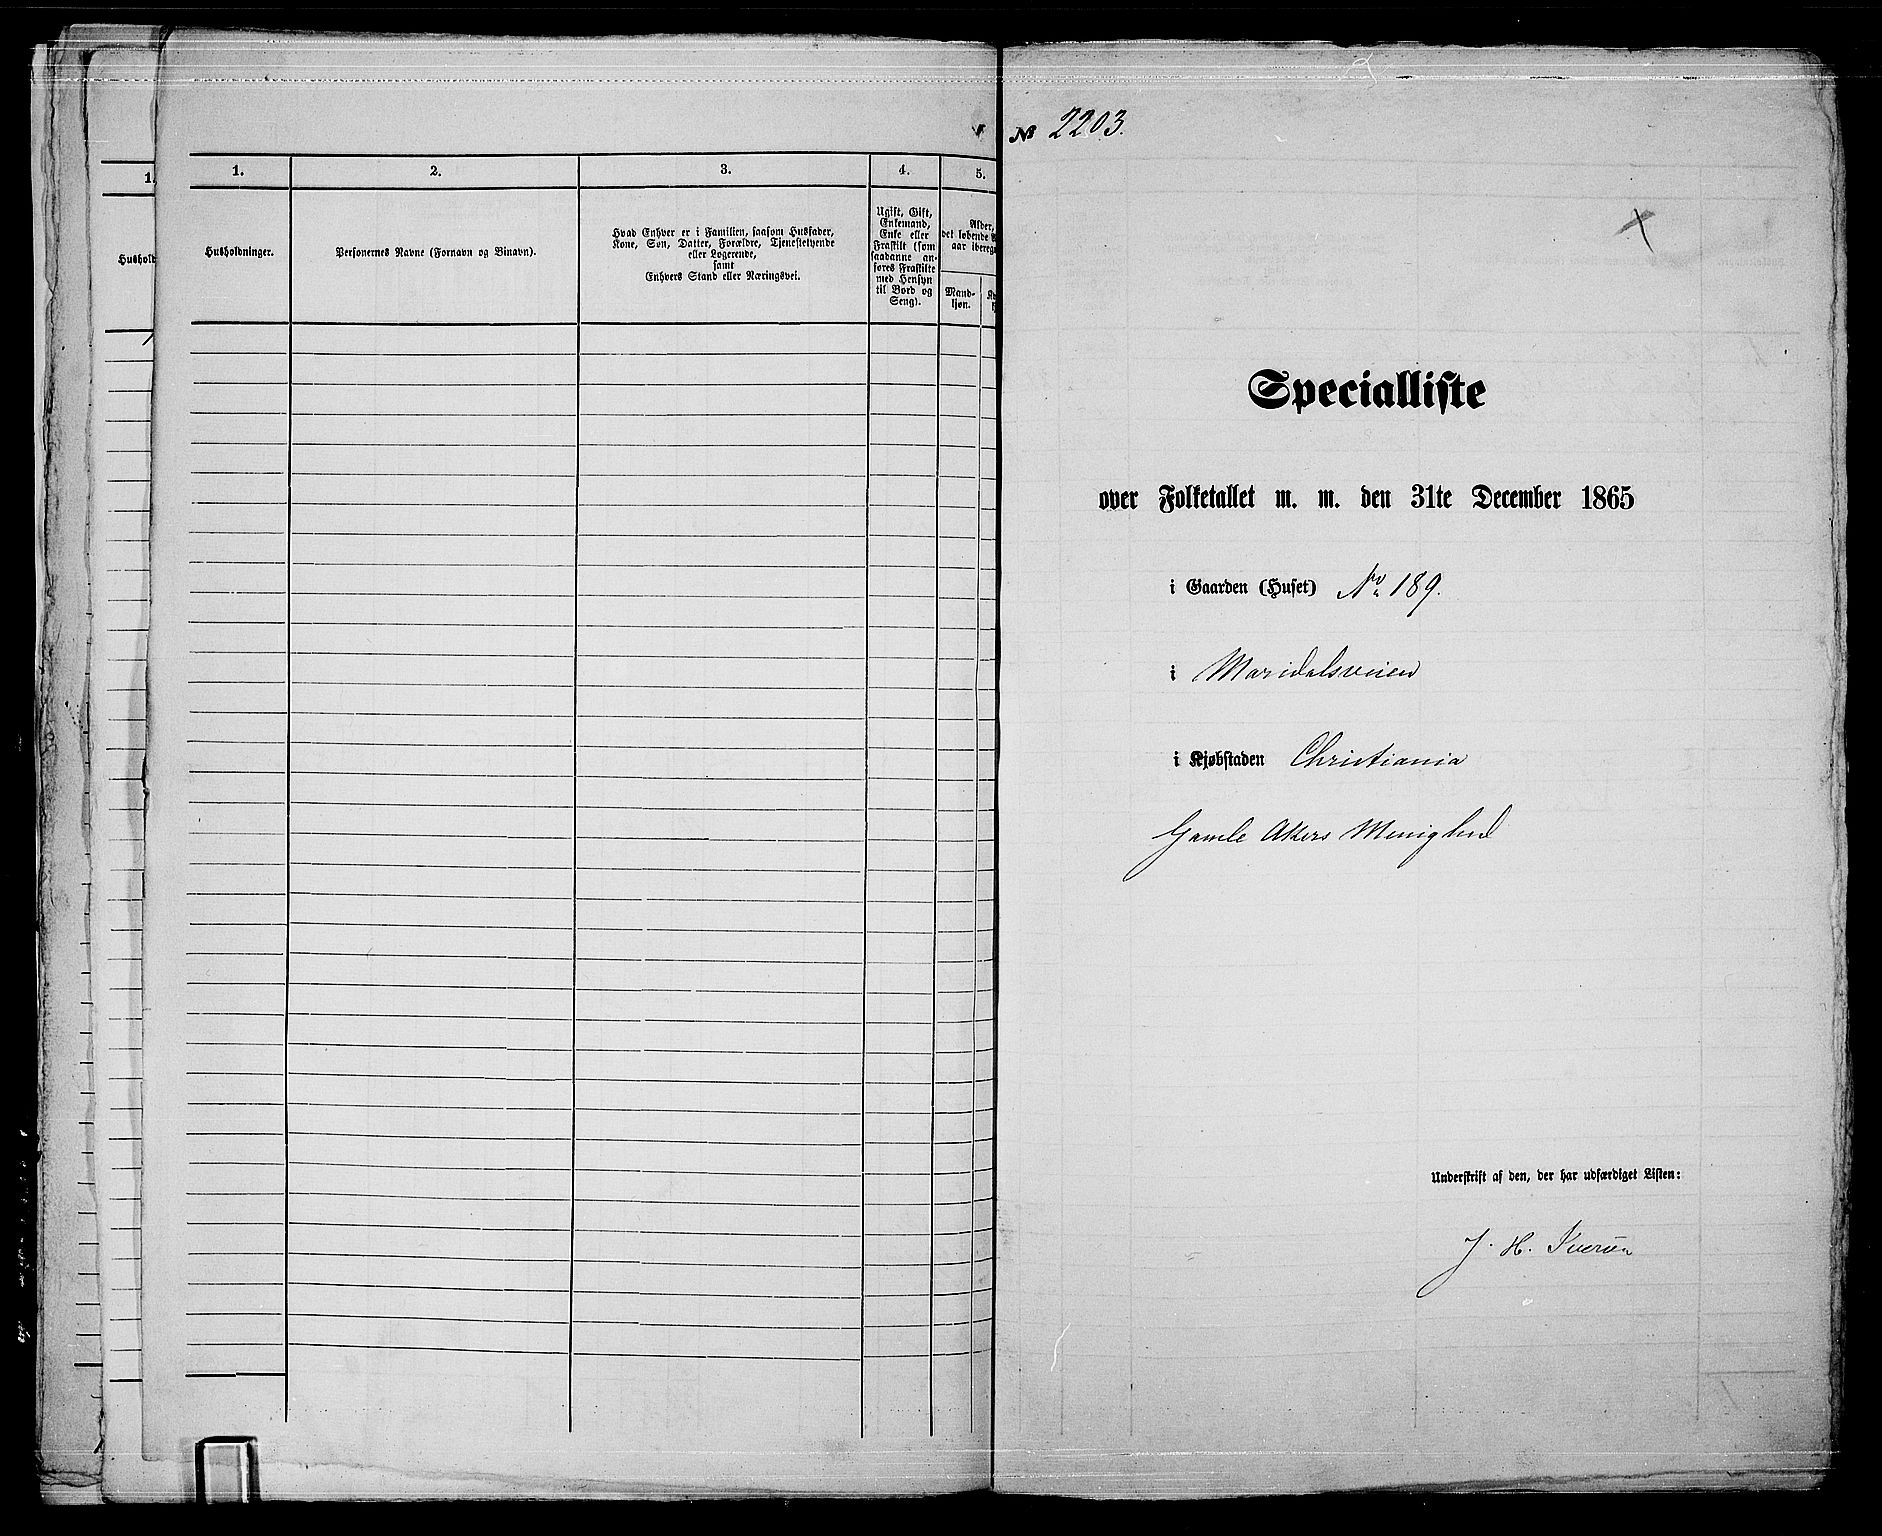 1.
Hushold
1.
2.
3.
4.
5.
Husholdninger.
Personernes Navne (Fornavn og Binavn).
Hvad Enhver er i Familien, saasom Husfader,
Kone, Søn, Datter, Forældre, Tjenestetyende
eller Logerende,
samt
Enhvers Stand eller Næringsvei.
Ugift, Gift,
Enkemand,
Enke eller
Fraskilt (som
saadanne an-
føres Fraskilte
med Hensyn
til Bord og
Seng).
Alder,
det løbende
aar iberegn
Mand-
kjøn.
№ 2203.
Specialliste
over Folketallet m. m. den 31te December 1865
i Gaarden (Huset) No 189.
i Maridalsveien
i Kjøbstaden Christiania
Gamle Akers Menighed
Underskrift af den, der har udfærdiget Listen:
J. H. Iversen